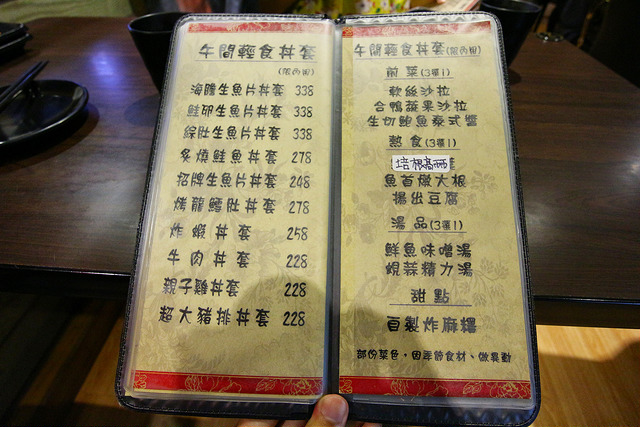 午間輕食丼套
(限內用)
海膽生魚片丼套 338
鮭卵生魚片丼套 338
綜肚生魚片丼套 338
炙燒鮭魚丼套 278
招牌生魚片丼套 248
烤龍鱈肚丼套 278
炸蝦丼套 258
牛肉丼套 228
親子雞丼套 228
超大豬排丼套 228
午間輕食丼套(限內用)
前菜(3選1)
軟絲沙拉
合鴨蔬果沙拉
生切鮑魚泰式醬
熱食(3選1)
培根高麗
魚首燉大根
揚出豆腐
湯品(3選1)
鮮魚味噌湯
蜆蒜精力湯
甜點
自製炸麻糬
部份菜色，因季節食材、做異動